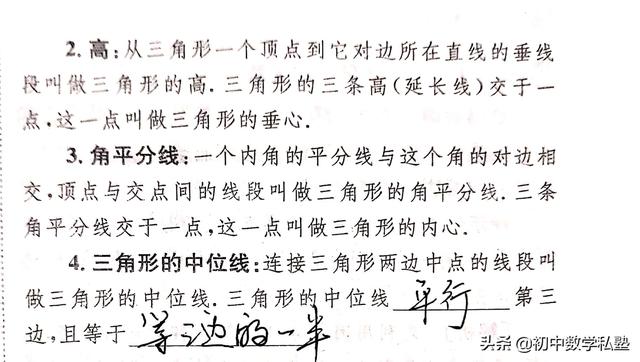 2. 高:从三角形一个顶点到它对边所在直线的垂线
段叫做三角形的高. 三角形的三条高(延长线)交于一
点,这一点叫做三角形的垂心.
3. 角平分线:一个内角的平分线与这个角的对边相
交,顶点与交点间的线段叫做三角形的角平分线. 三条
角平分线交于一点,这一点叫做三角形的内心.
4. 三角形的中位线:连接三角形两边中点的线段叫
做三角形的中位线. 三角形的中位线 平行 第三
边,且等于 第三边的一半
头条 @初中数学私塾